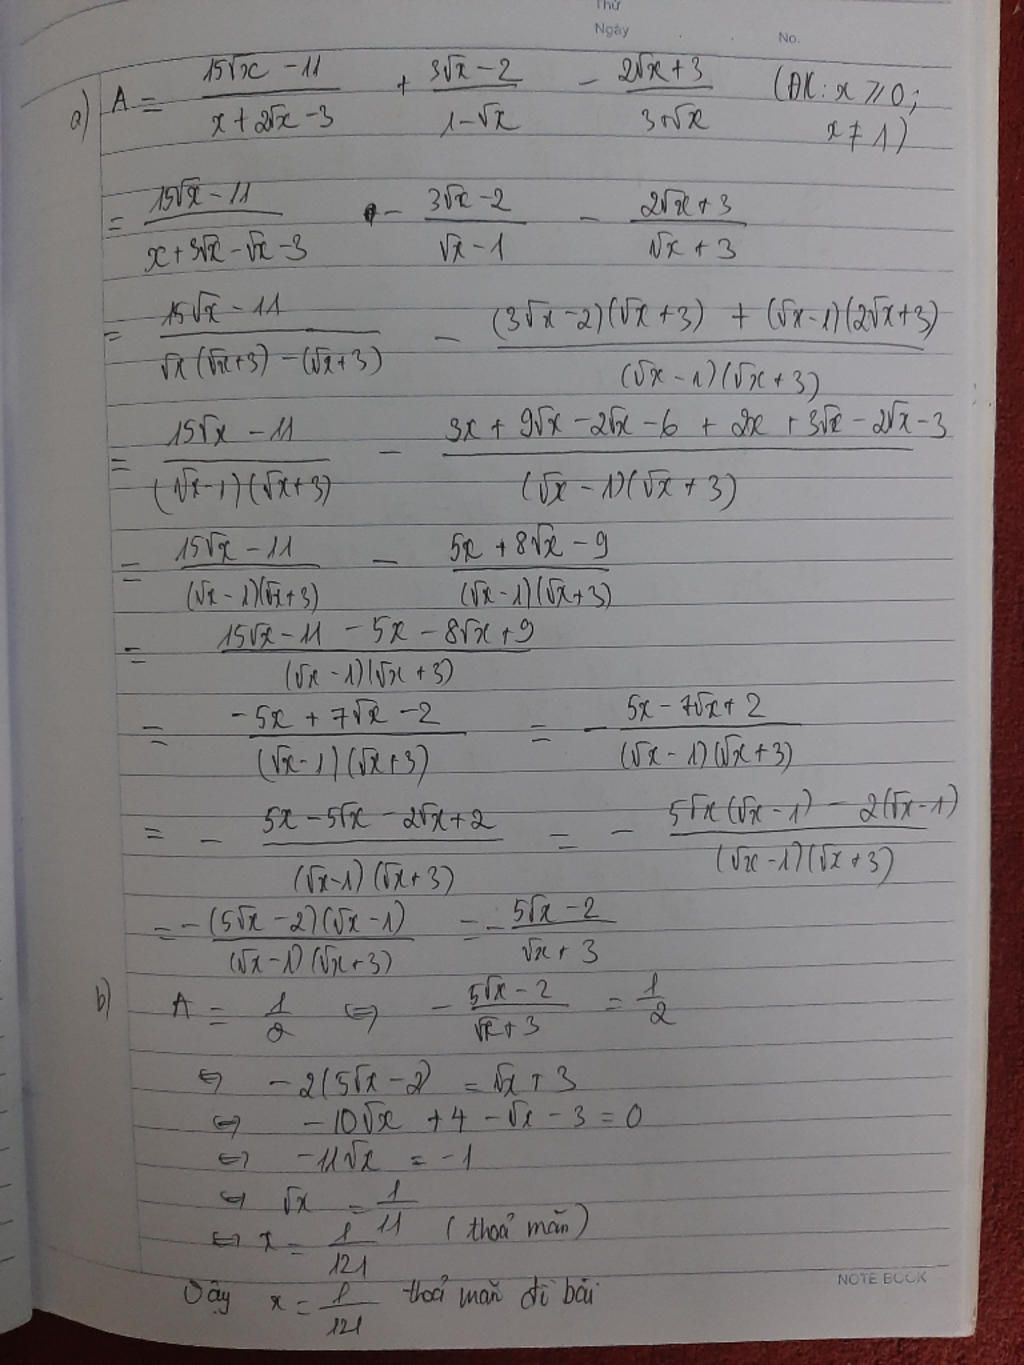 Thứ
Ngày
No.
a) A = \frac{15\sqrt{x} - 11}{x + 2\sqrt{x} - 3} + \frac{3\sqrt{x} - 2}{1 - \sqrt{x}} - \frac{2\sqrt{x} + 3}{3 + \sqrt{x}} (ĐK: x ⩾ 0; x ≠ 1)
= \frac{15\sqrt{x} - 11}{x + 3\sqrt{x} - \sqrt{x} - 3} - \frac{3\sqrt{x} - 2}{\sqrt{x} - 1} - \frac{2\sqrt{x} + 3}{\sqrt{x} + 3}
= \frac{15\sqrt{x} - 11}{\sqrt{x}(\sqrt{x} + 3) - (\sqrt{x} + 3)} - \frac{(3\sqrt{x} - 2)(\sqrt{x} + 3) + (\sqrt{x} - 1)(2\sqrt{x} + 3)}{(\sqrt{x} - 1)(\sqrt{x} + 3)}
= \frac{15\sqrt{x} - 11}{(\sqrt{x} - 1)(\sqrt{x} + 3)} - \frac{3x + 9\sqrt{x} - 2\sqrt{x} - 6 + 2x + 3\sqrt{x} - 2\sqrt{x} - 3}{(\sqrt{x} - 1)(\sqrt{x} + 3)}
= \frac{15\sqrt{x} - 11}{(\sqrt{x} - 1)(\sqrt{x} + 3)} - \frac{5x + 8\sqrt{x} - 9}{(\sqrt{x} - 1)(\sqrt{x} + 3)}
= \frac{15\sqrt{x} - 11 - 5x - 8\sqrt{x} + 9}{(\sqrt{x} - 1)(\sqrt{x} + 3)}
= \frac{-5x + 7\sqrt{x} - 2}{(\sqrt{x} - 1)(\sqrt{x} + 3)} = - \frac{5x - 7\sqrt{x} + 2}{(\sqrt{x} - 1)(\sqrt{x} + 3)}
= - \frac{5x - 5\sqrt{x} - 2\sqrt{x} + 2}{(\sqrt{x} - 1)(\sqrt{x} + 3)} = - \frac{5\sqrt{x}(\sqrt{x} - 1) - 2(\sqrt{x} - 1)}{(\sqrt{x} - 1)(\sqrt{x} + 3)}
= - \frac{(5\sqrt{x} - 2)(\sqrt{x} - 1)}{(\sqrt{x} - 1)(\sqrt{x} + 3)} = - \frac{5\sqrt{x} - 2}{\sqrt{x} + 3}
b) A = \frac{1}{2} ⇔ - \frac{5\sqrt{x} - 2}{\sqrt{x} + 3} = \frac{1}{2}
⇔ -2(5\sqrt{x} - 2) = \sqrt{x} + 3
⇔ -10\sqrt{x} + 4 - \sqrt{x} - 3 = 0
⇔ -11\sqrt{x} = -1
⇔ \sqrt{x} = \frac{1}{11}
⇔ x = \frac{1}{121} (thoả mãn)
Vậy x = \frac{1}{121} thoả mãn đề bài
NOTE BOOK